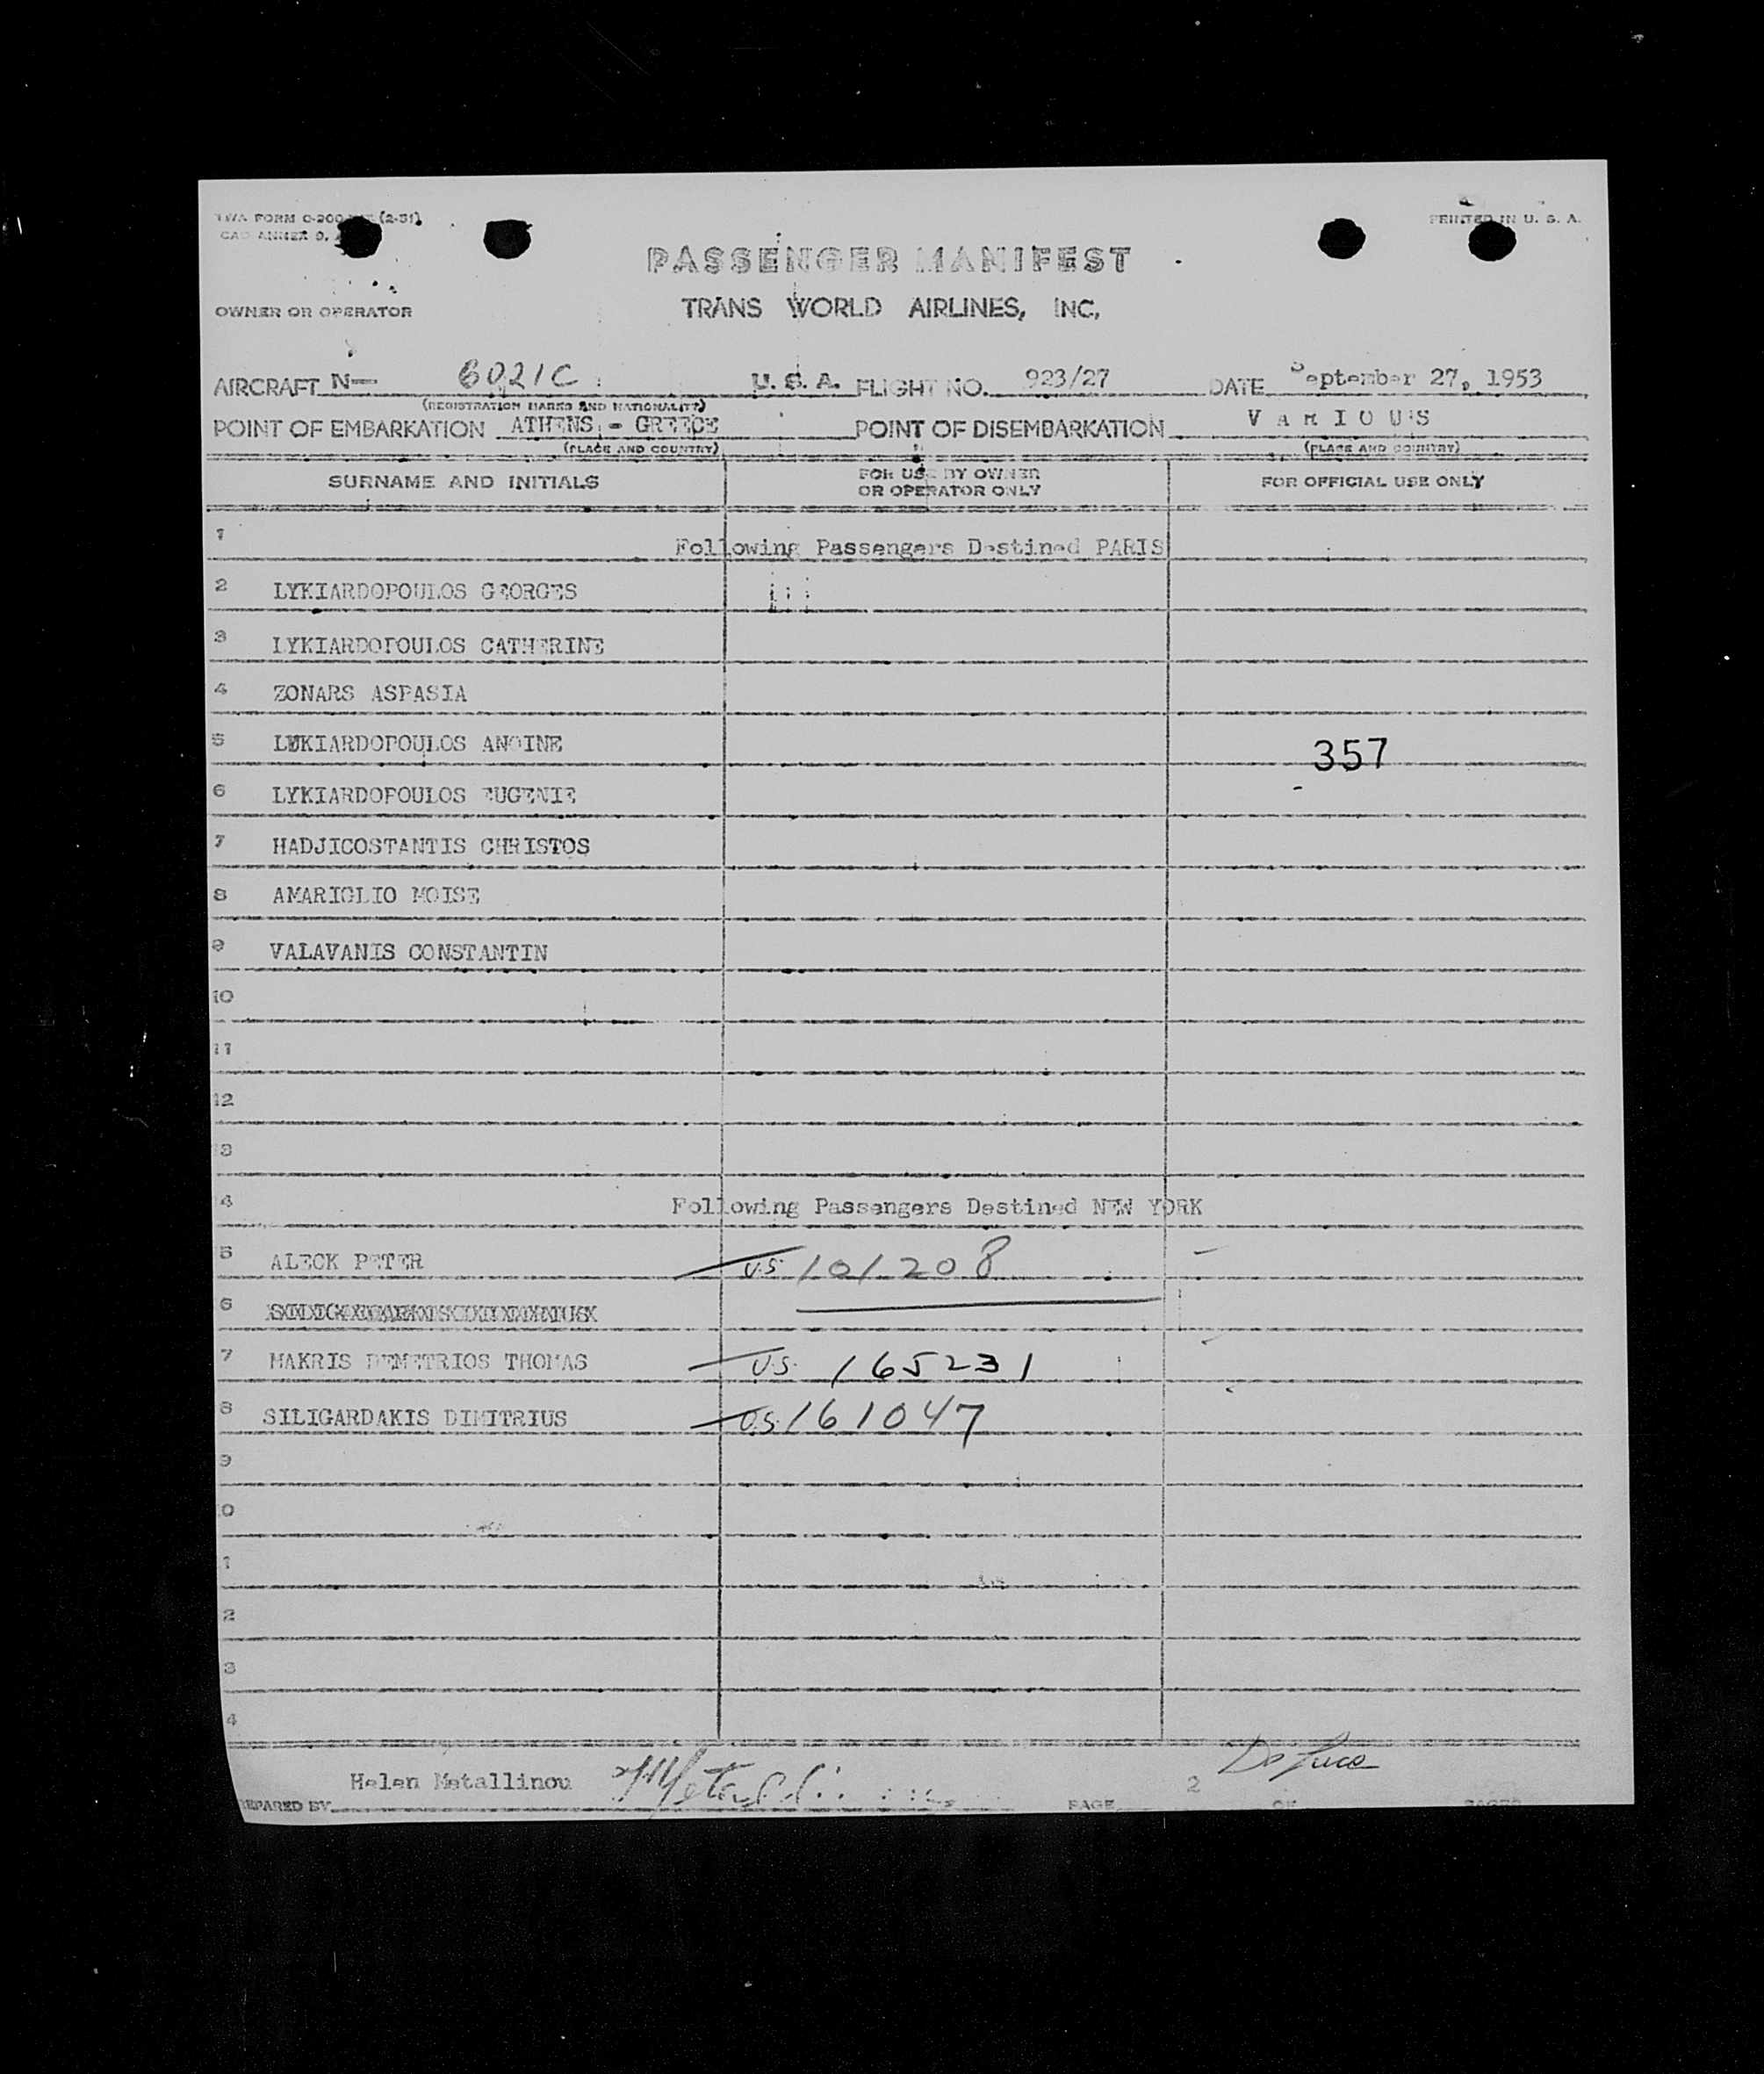 TWA FORM O-200 (2-51)
PRINTED IN U. S. A.
PASSENGER MANIFEST
OWNER OR OPERATOR
TRANS WORLD AIRLINES, INC.
AIRCRAFT N— 6021C U. S. A. FLIGHT NO. 923/27 DATE September 27, 1953
(REGISTRATION MARKS AND NATIONALITY)
POINT OF EMBARKATION ATHENS - GREECE POINT OF DISEMBARKATION V A R I O U S
(PLACE AND COUNTRY) (PLACE AND COUNTRY)
SURNAME AND INITIALS FOR USE BY OWNER OR OPERATOR ONLY FOR OFFICIAL USE ONLY
1 Following Passengers Destined PARIS
2 LYKIARDOPOULOS GEORGES
3 LYKIARDOPOULOS CATHERINE
4 ZONARS ASPASIA
5 LYKIARDOPOULOS ANOINE 357
6 LYKIARDOPOULOS EUGENIE
7 HADJICOSTANTIS CHRISTOS
8 AMARIGLIO MOISE
9 VALAVANIS CONSTANTIN
10
11
12
3
4 Following Passengers Destined NEW YORK
5 ALECK PETER U.S. 101208
6
7 MAKRIS DEMETRIOS THOMAS U.S. 165231
8 SILIGARDAKIS DIMITRIUS U.S. 161047
9
0
1
2
3
4
Helen Metallinou De Luca
EPARED BY PAGE 2 OF PAGES